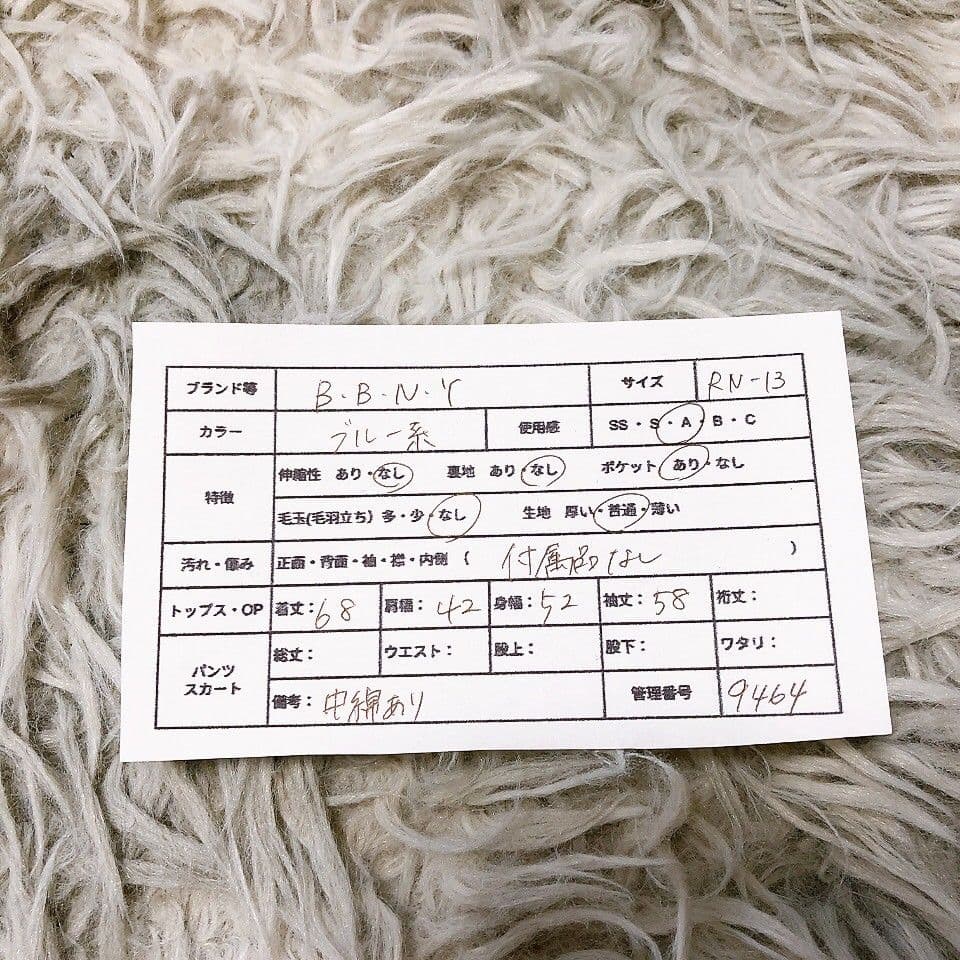 ブランド等 B.B.N.Y サイズ RN-13
カラー ブルー系 使用感 SS・S・A・B・C
特徴 伸縮性 あり・なし 裏地 あり・なし ポケット あり・なし
毛玉(毛羽立ち) 多・少・なし 生地 厚い・普通・薄い
汚れ・傷み 正面・背面・袖・襟・内側 ( 付属品なし )
トップス・OP 着丈:68 肩幅:42 身幅:52 袖丈:58 裄丈:
パンツ
スカート
総丈: ウエスト: 股上: 股下: ワタリ:
備考:中綿あり 管理番号 9464